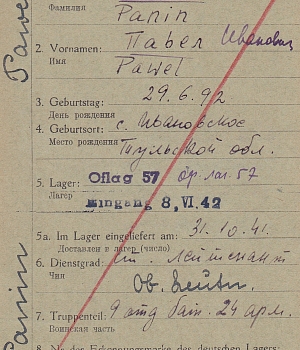 Фамилия Panin
2. Vornamen: Павел Иванович
Имя Pawel
3. Geburtstag: 29.6.92
День рождения
4. Geburtsort: с. Ивановское
Место рождения Тульской обл.
5. Lager: Oflag 57 оф. лаг. 57
Лагер Eingang 8. VI. 42
5a. Im Lager eingeliefert am: 31.10.41.
Доставлен в лагер (число)
6. Dienstgrad: лейтенант
Чин Ob. Leutn.
7. Truppenteil: 9 отд бат. 24 арм.
Воинская часть
8. Nr. der Erkennungsmarke des deutschen Lagers:
Pawel
Panin